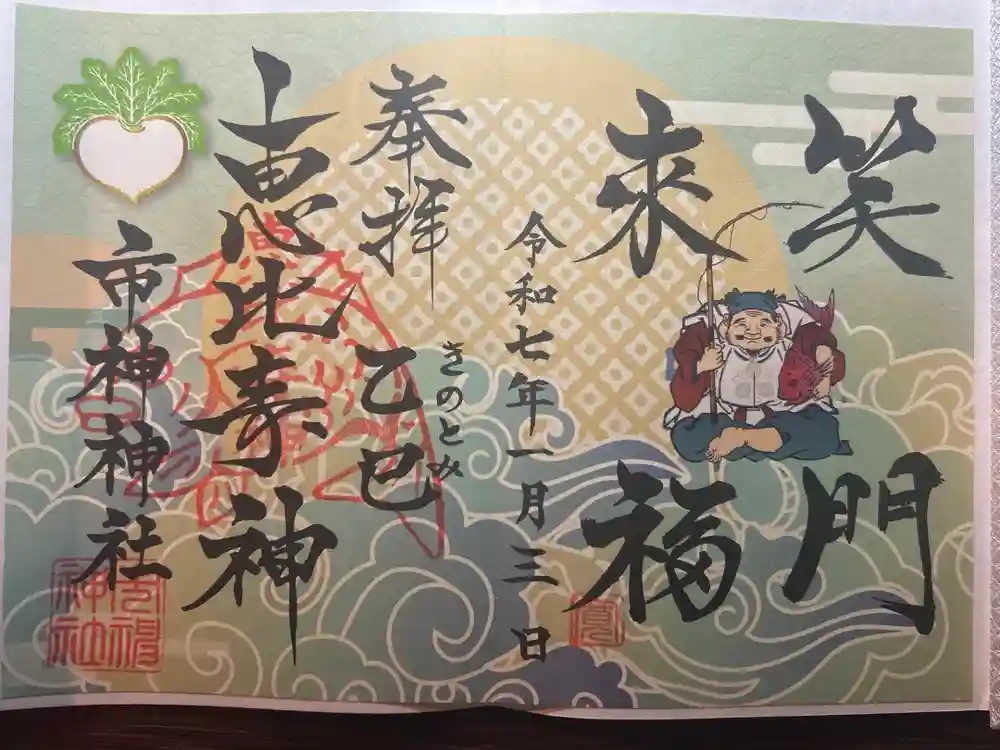 笑門
来福
令和七年一月三日
きのとみ
乙巳
奉拝
恵比寿神
市神神社